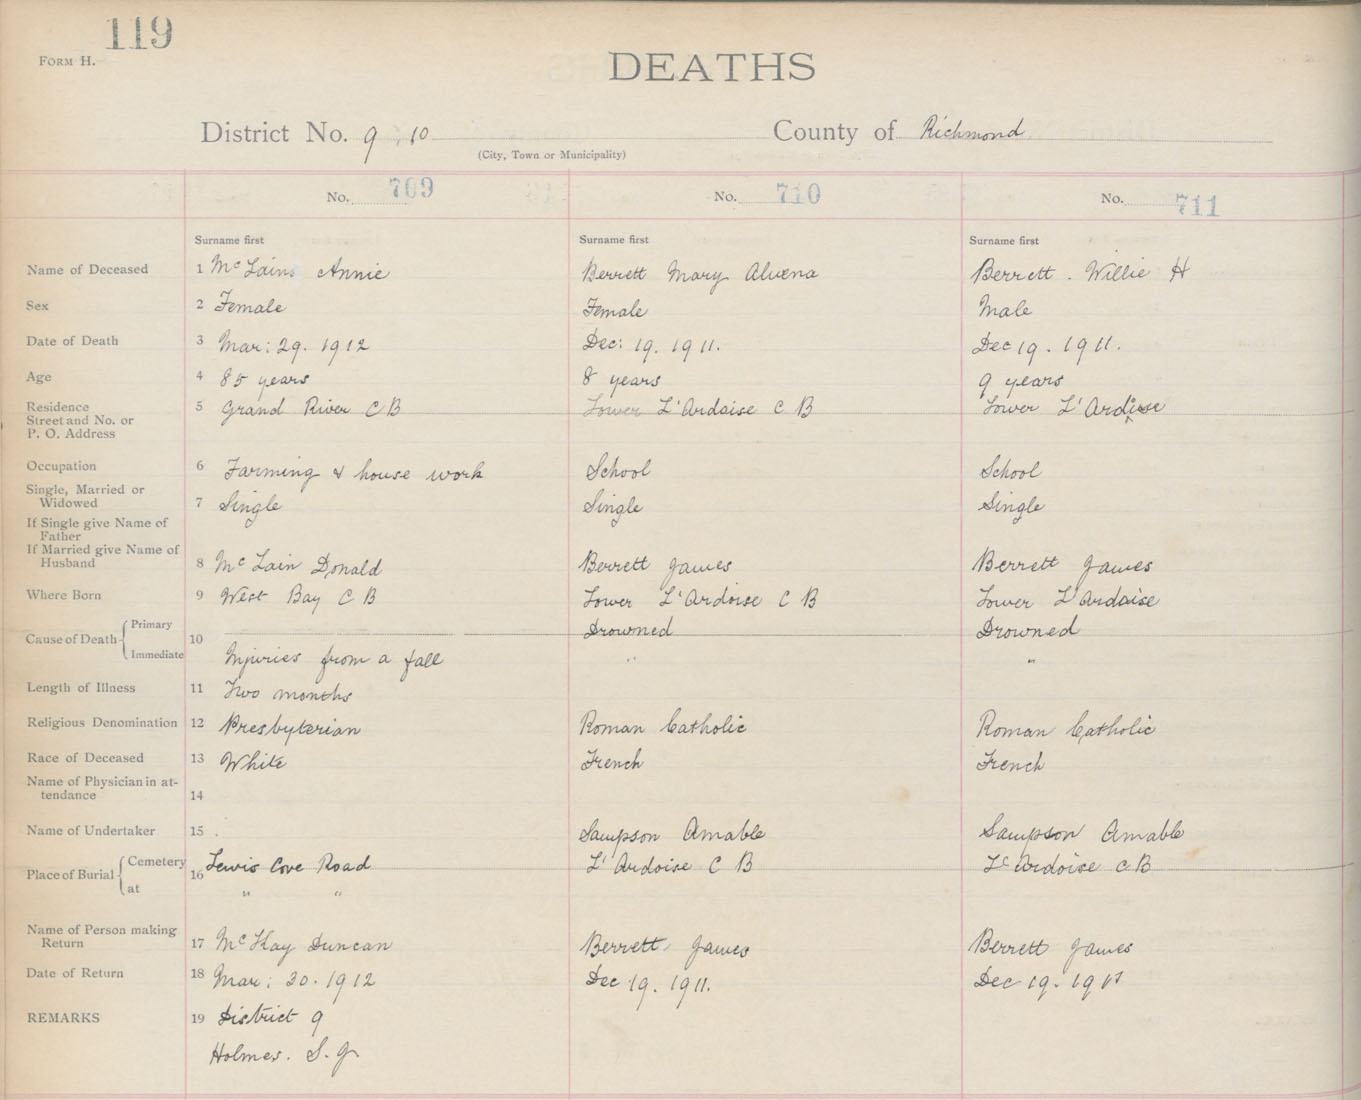 119
FORM H.
DEATHS
District No. 9, 10 County of Richmond
(City, Town or Municipality)
No. 709 No. 710 No. 711
Surname first Surname first Surname first
Name of Deceased 1 Mc Lain Annie Berrett Mary Alvena Berrett. Willie H
Sex 2 Female Female Male
Date of Death 3 Mar: 29. 1912 Dec: 19. 1911. Dec 19. 1911.
Age 4 85 years 8 years 9 years
Residence 5 Grand River C B Lower L'Ardoise C B Lower L'Ardoise
Street and No. or
P. O. Address
Occupation 6 Farming & house work School School
Single, Married or
Widowed 7 Single Single Single
If Single give Name of
Father
If Married give Name of
Husband 8 Mc Lain Donald Berrett James Berrett James
Where Born 9 West Bay C B Lower L'Ardoise C B Lower L'Ardoise
Cause of Death Primary 10 Drowned Drowned
Immediate Injuries from a fall " "
Length of Illness 11 Two months
Religious Denomination 12 Presbyterian Roman Catholic Roman Catholic
Race of Deceased 13 White French French
Name of Physician in at-
tendance 14
Name of Undertaker 15 . Sampson Amable Sampson Amable
Place of Burial Cemetery 16 Lewis Cove Road L'Ardoise C B L'Ardoise C B
at " "
Name of Person making
Return 17 Mc Kay Duncan Berrett James Berrett James
Date of Return 18 Mar: 30. 1912 Dec 19. 1911. Dec 19. 1911
REMARKS 19 District 9
Holmes. S. J.